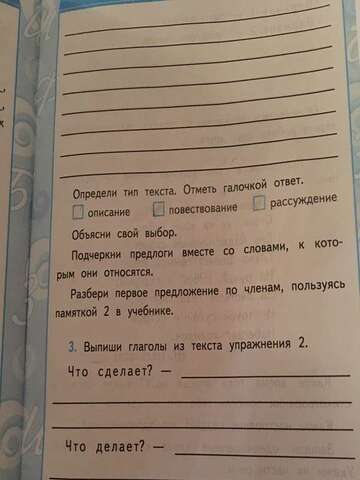 Определи тип текста. Отметь галочкой ответ.
описание повествование рассуждение
Объясни свой выбор.
Подчеркни предлоги вместе со словами, к кото-
рым они относятся.
Разбери первое предложение по членам, пользуясь
памяткой 2 в учебнике.
3. Выпиши глаголы из текста упражнения 2.
Что сделает? —
Что делает? —